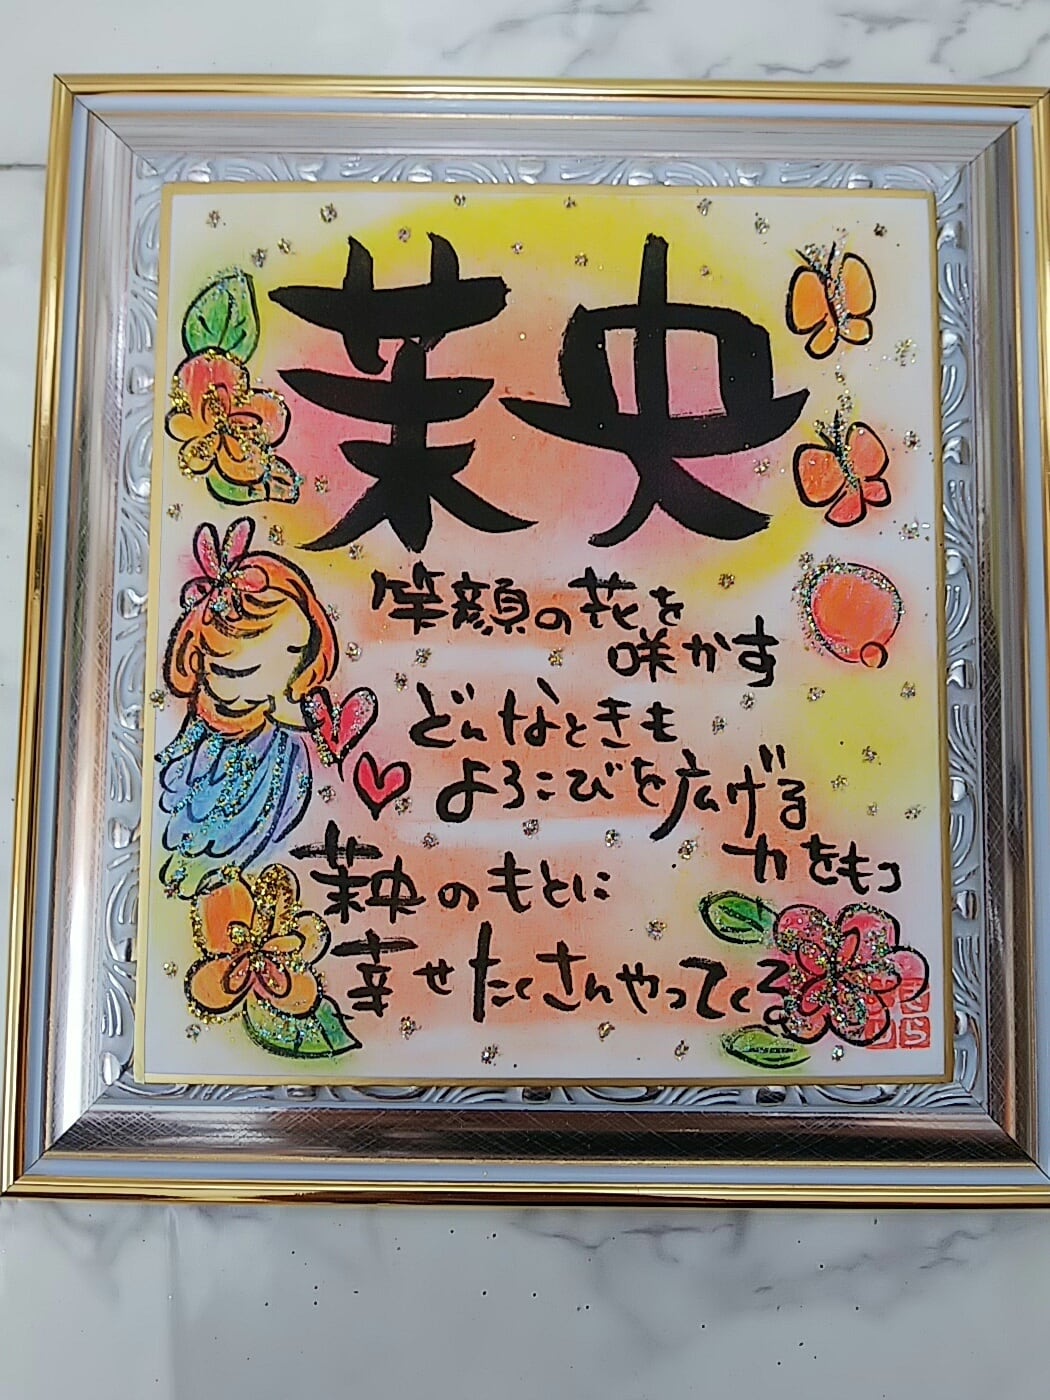 茉央
笑顔の花を
咲かす
どんなときも
よろこびを広げる
力をもつ
茉央のもとに
幸せたくさんやってくる